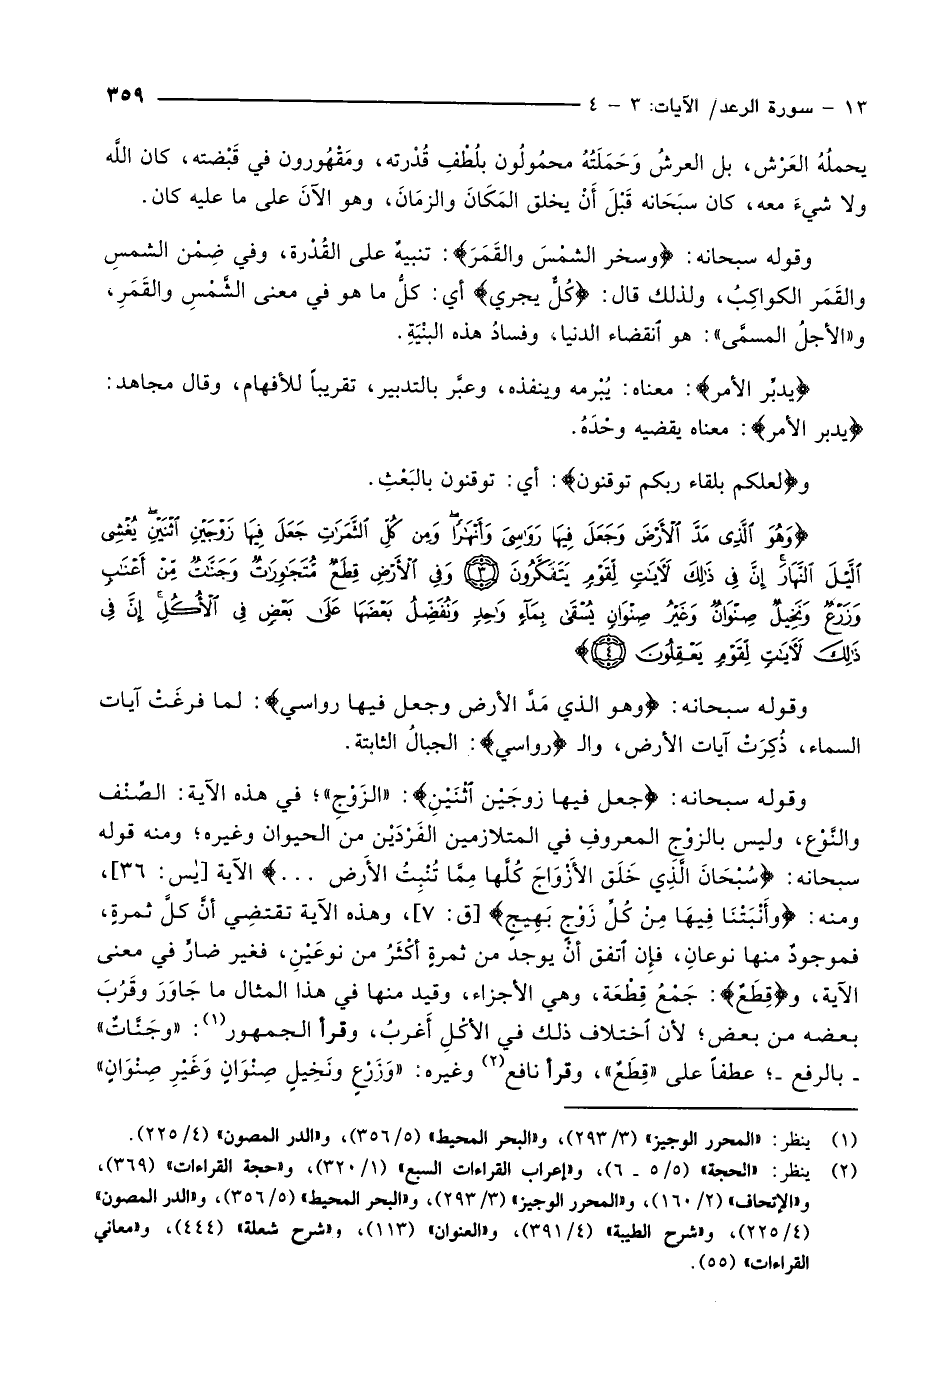 ١٣ - سورة الرعد/ الآيات: ٣ - ٤ ٣٥٩
يحملُهُ العَرْش، بل العرشُ وَحَمَلَتُهُ محمُولُون بلُطْفِ قُدْرته، ومَقْهُورون في قَبْضته، كان اللَّه
ولا شيءَ معه، كان سبَحَانه قَبْلَ أَنْ يخلق المَكَانَ والزمَانَ، وهو الآنَ على ما عليه كان.
وقوله سبحانه: ﴿وسخر الشمْسَ والقَمَرَ﴾: تنبيهٌ على القُدْرة، وفي ضِمْن الشمسِ
والقَمَر الكواكِبُ، ولذلك قال: ﴿كُلٌّ يجري﴾ أي: كلُّ ما هو في معنى الشَّمْسِ والقَمَرِ،
و«الأجلُ المسمَّى»: هو ٱنقضاء الدنيا، وفسادُ هذه البنْيَةِ.
﴿يدبِّر الأمر﴾: معناه: يُبْرمه وينفذه، وعبَّر بالتدبير، تقريباً للأفهام، وقال مجاهد:
﴿يدبر الأمر﴾: معناه يقضيه وحْدَهُ.
و﴿لعلكم بلقاء ربكم توقنون﴾: أي: توقنون بالبَعْثِ.
﴿وَهُوَ ٱلَّذِى مَدَّ ٱلْأَرْضَ وَجَعَلَ فِيهَا رَوَٰسِىَ وَأَنْهَٰرًاۖ وَمِن كُلِّ ٱلثَّمَرَٰتِ جَعَلَ فِيهَا زَوْجَيْنِ ٱثْنَيْنِۖ يُغْشِى
ٱلَّيْلَ ٱلنَّهَارَۚ إِنَّ فِى ذَٰلِكَ لَأَيَٰتٍ لِّقَوْمٍ يَتَفَكَّرُونَ ﴿٣﴾ وَفِى ٱلْأَرْضِ قِطَعٌ مُّتَجَٰوِرَٰتٌ وَجَنَّٰتٌ مِّنْ أَعْنَٰبٍ
وَزَرْعٌ وَنَخِيلٌ صِنْوَانٌ وَغَيْرُ صِنْوَانٍ يُسْقَىٰ بِمَآءٍ وَٰحِدٍ وَنُفَضِّلُ بَعْضَهَا عَلَىٰ بَعْضٍ فِى ٱلْأُكُلِۚ إِنَّ فِى
ذَٰلِكَ لَأَيَٰتٍ لِّقَوْمٍ يَعْقِلُونَ ﴿٤﴾﴾
وقوله سبحانه: ﴿وهو الذي مَدَّ الأرض وجعل فيها رواسي﴾: لما فرغَتْ آيات
السماء، ذُكِرَتْ آيات الأرض، والـ ﴿رواسي﴾: الجبالُ الثابتة.
وقوله سبحانه: ﴿جعل فيها زوجَيْن ٱثْنَيْنِ﴾: «الزَوْجِ»؛ في هذه الآية: الصِّنْف
والنَّوْع، وليس بالزوْج المعروفِ في المتلازمين الفَرْدَيْن من الحيوان وغيره؛ ومنه قوله
سبحانه: ﴿سُبْحَانَ الَّذِي خَلَق الأَزْوَاجَ كُلَّها مِمَّا تُنْبِتُ الأَرض ...﴾ الآية [يٰس: ٣٦]،
ومنه: ﴿وأَنْبَتْنَا فِيهَا مِنْ كُلِّ زَوْجٍ بَهِيجٍ﴾ [ق: ٧]، وهذه الآية تقتضي أنَّ كلَّ ثمرةٍ،
فموجودٌ منها نوعانِ، فإن ٱتفق أنْ يوجد من ثمرةٍ أكْثَرُ من نوعَيْنِ، فغير ضارٍّ في معنى
الآية، و﴿قِطَعٌ﴾: جَمْعُ قِطْعَة، وهي الأجزاء، وقيد منها في هذا المثال ما جَاوَرَ وقَرُبَ
بعضه من بعض؛ لأن ٱختلاف ذلك في الأكْلِ أَغربُ، وقرأ الجمهور(١): «وجَنَّاتٌ»
ـ بالرفع ـ؛ عطفاً على «قِطَعٌ»، وقرأ نافع(٢) وغيره: «وَزَرْعٍ ونَخِيلٍ صِنْوَانٍ وَغَيْرِ صِنْوَانٍ»
(١) ينظر: «المحرر الوجيز» (٣/ ٢٩٣)، و«البحر المحيط» (٥/ ٣٥٦)، و«الدر المصون» (٤/ ٢٢٥).
(٢) ينظر: «الحجة» (٥/ ٥ ـ ٦)، و«إعراب القراءات السبع» (١/ ٣٢٠)، و«حجة القراءات» (٣٦٩)،
و«الإتحاف» (٢/ ١٦٠)، و«المحرر الوجيز» (٣/ ٢٩٣)، و«البحر المحيط» (٥/ ٣٥٦)، و«الدر المصون»
(٤/ ٢٢٥)، و«شرح الطيبة» (٤/ ٣٩١)، و«العنوان» (١١٣)، و«شرح شعلة» (٤٤٤)، و«معاني
القراءات» (٥٥).